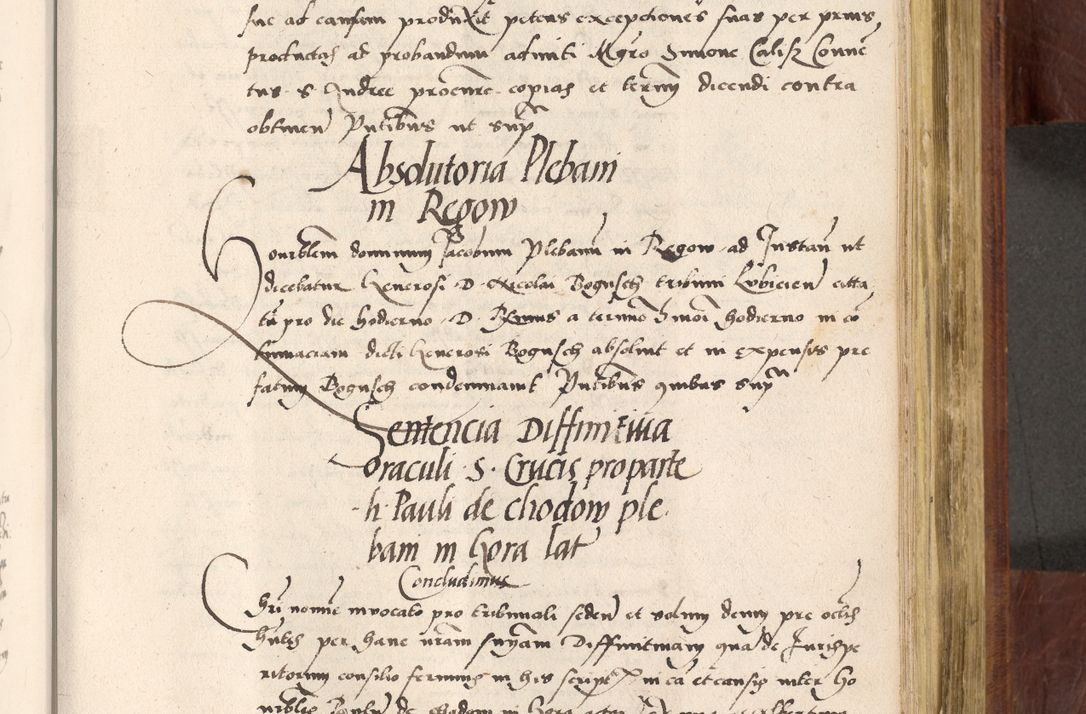 sue ad causam produxit petens exceptiones suas per prius
productas ad probandum admitti Mgro Simone Calisz Conue
tus S Andree procure copias et termi dicendi contra
obtinen Pntibus ut sup
Absolutoria Plebani
in Regow
Honorblem dominum Jacobum Plebanu in Regow ad Instan ut
dicebatur Generosi D Nicolai Bogusch tribuni Lubicien citta
tu pro die hodierno D a termo hmoi hodierno in co
tumaciam dicti Generosi Bogusch absoluit et in expensis pre
fatum Bogusch condemnauit Pntibus quibus sup
Sentencia Diffinitiua
oraculi S Crucis pro parte
h Pauli de chodow ple
bani in Gora lat
Concludimus
Chri nomine inuocato pro tribunali seden et solum deum pre oculis
hntes per hanc nram snyam Diffinitiuam qua de Jurispe
ritorum consilio ferimus in his script in ca et causis inter Ho
norblis Paulu de chodow in Gora